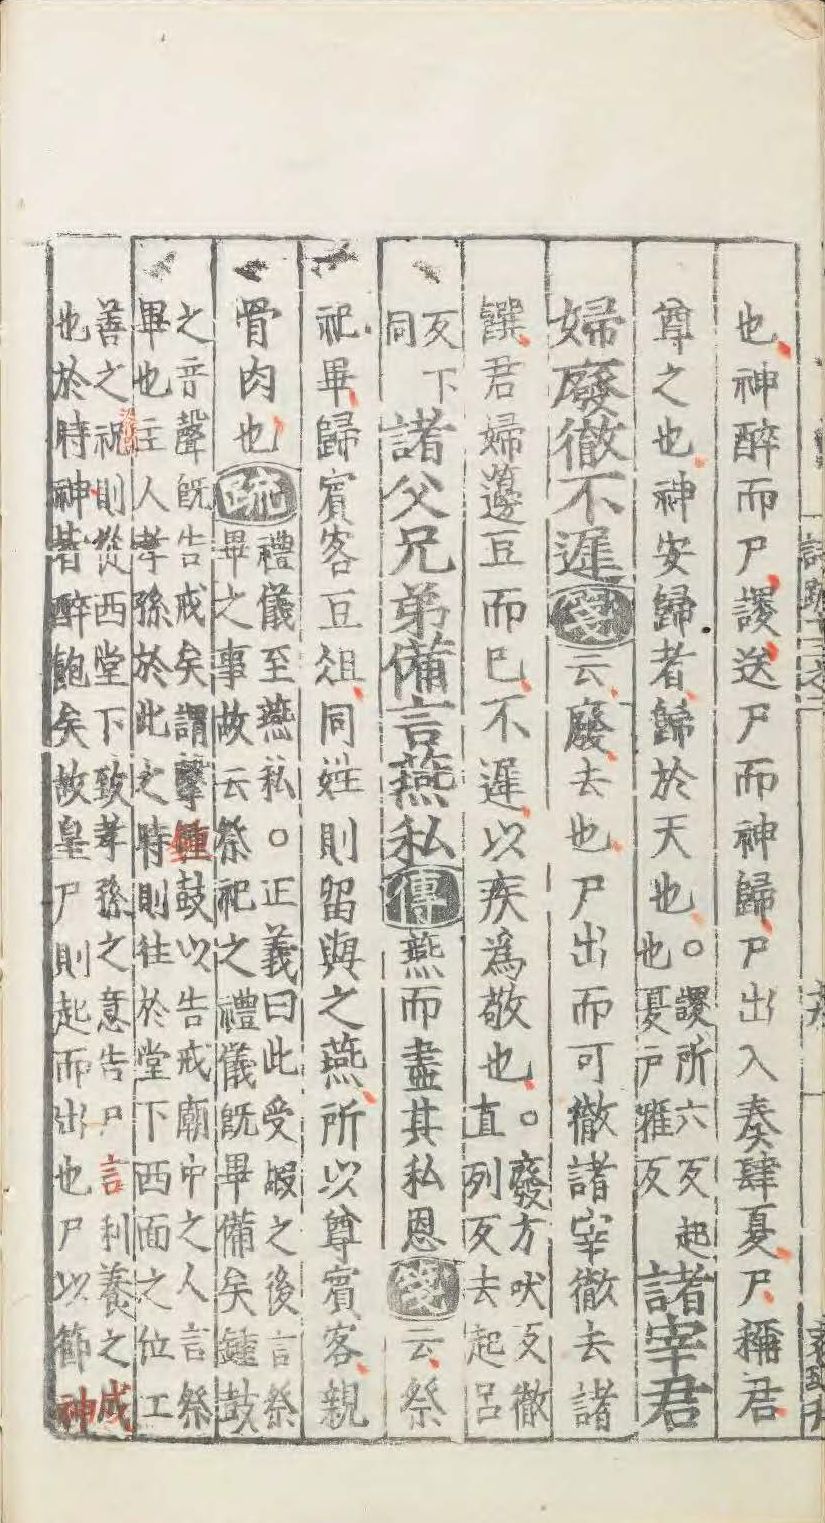 也神醉而尸謖送尸而神歸尸出入奏肆夏尸稱君
尊之也神安歸者歸於天也○謖所六反起
也夏戶雅反
諸宰君
婦廢徹不遲箋云廢去也尸出而可徹諸宰徹去諸
饌君婦籩豆而已不遲以疾為敬也○廢方吠反徹
直列反去起呂
反下
同
諸父兄弟備言燕私傳燕而盡其私恩箋云祭
祀畢歸賓客豆俎同姓則留與之燕所以尊賓客親
骨肉也疏禮儀至燕私○正義曰此受嘏之後言祭
畢之事故云祭祀之禮儀既畢備矣鍾鼓
之音聲既告戒矣謂擊鍾鼓以告戒廟中之人言祭
畢也主人孝孫於此之時則往於堂下西面之位工
善之祝則從西堂下致孝孫之意告尸言利養之成
也於時神皆醉飽矣故皇尸則起而出也尸以節神